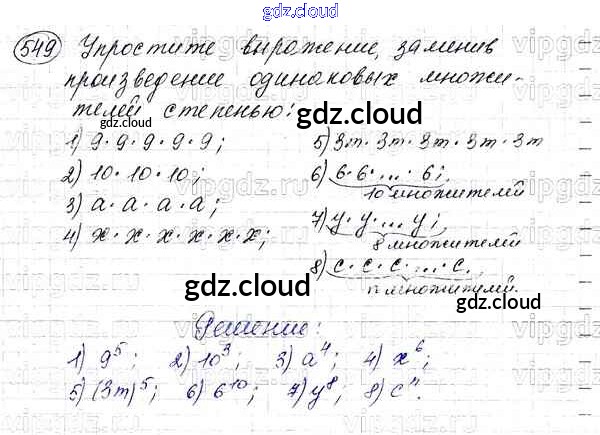 gdz.cloud
549 Упростите выражение, заменив
произведение одинаковых множи-
телей степенью:
gdz.cloud
1) 9·9·9·9·9;
2) 10·10·10;
3) a·a·a·a;
4) x·x·x·x·x·x;
5) 3m·3m·3m·3m·3m
6) 6·6·...·6;
10 множителей
7) y·y·...y;
8 множителей
8) c·c·c·...·c.
n множителей.
gdz.cloud
gdz.cloud
Решение:
1) 9⁵; 2) 10³; 3) a⁴; 4) x⁶;
5) (3m)⁵; 6) 6¹⁰; 7) y⁸; 8) cⁿ.
gdz.cloud